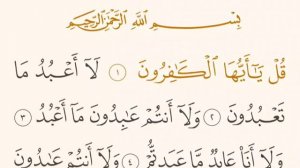 بِسْمِ ٱللَّهِ ٱلرَّحْمَٰنِ ٱلرَّحِيمِ
قُلْ يَٰٓأَيُّهَا ٱلْكَٰفِرُونَ ١ لَآ أَعْبُدُ مَا
تَعْبُدُونَ ٢ وَلَآ أَنتُمْ عَٰبِدُونَ مَآ أَعْبُدُ ٣
وَلَآ أَنَا۠ عَابِدٌ مَّا عَبَدتُّمْ ٤ وَلَآ أَنتُمْ عَٰبِدُونَ